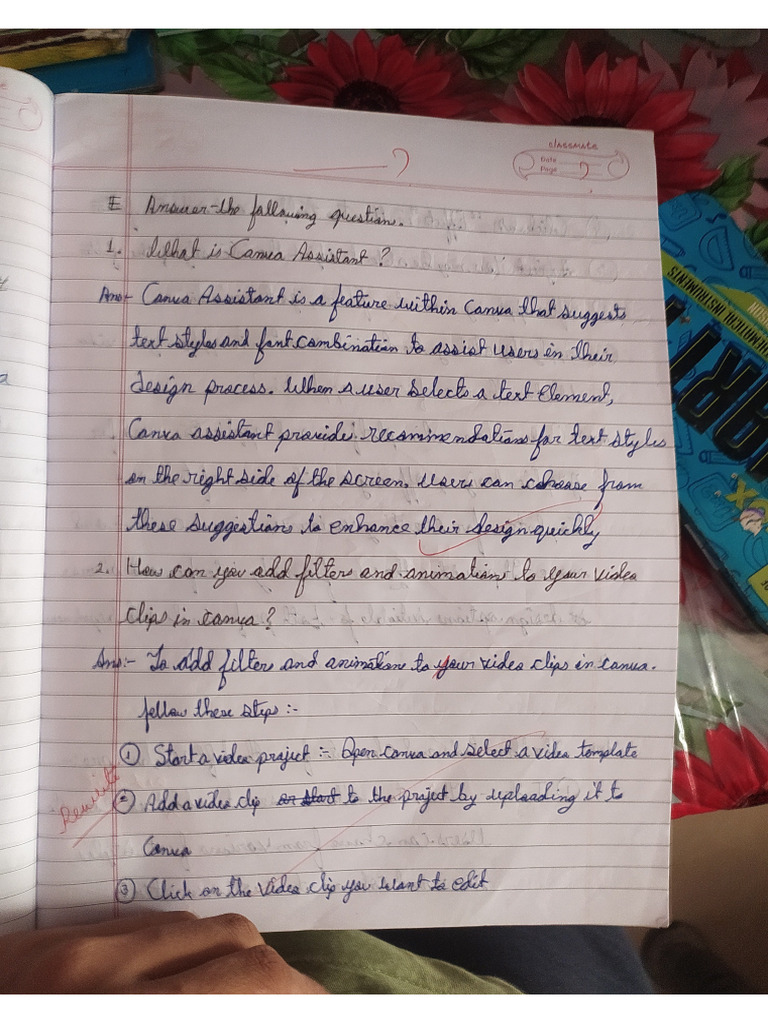 classmate
Date
Page
E Answer the following question.
1. What is Canva Assistant ?
Ans:- Canva Assistant is a feature within Canva that suggests
text styles and font combination to assist users in their
design process. When a user selects a text Element,
Canva assistant provide recommendations for text styles
on the right side of the screen. Users can choose from
these suggestions to enhance their design quickly
2. How can you add filters and animation to your video
clips in canva ?
Ans:- To add filters and animation to your video clips in canva.
follow these steps :-
① Start a video project :- Open canva and select a video template
Rewrite
② Add a video clip or start to the project by uploading it to
Canva
③ Click on the video clip you want to edit
MATHEMATICAL INSTRUMENTS